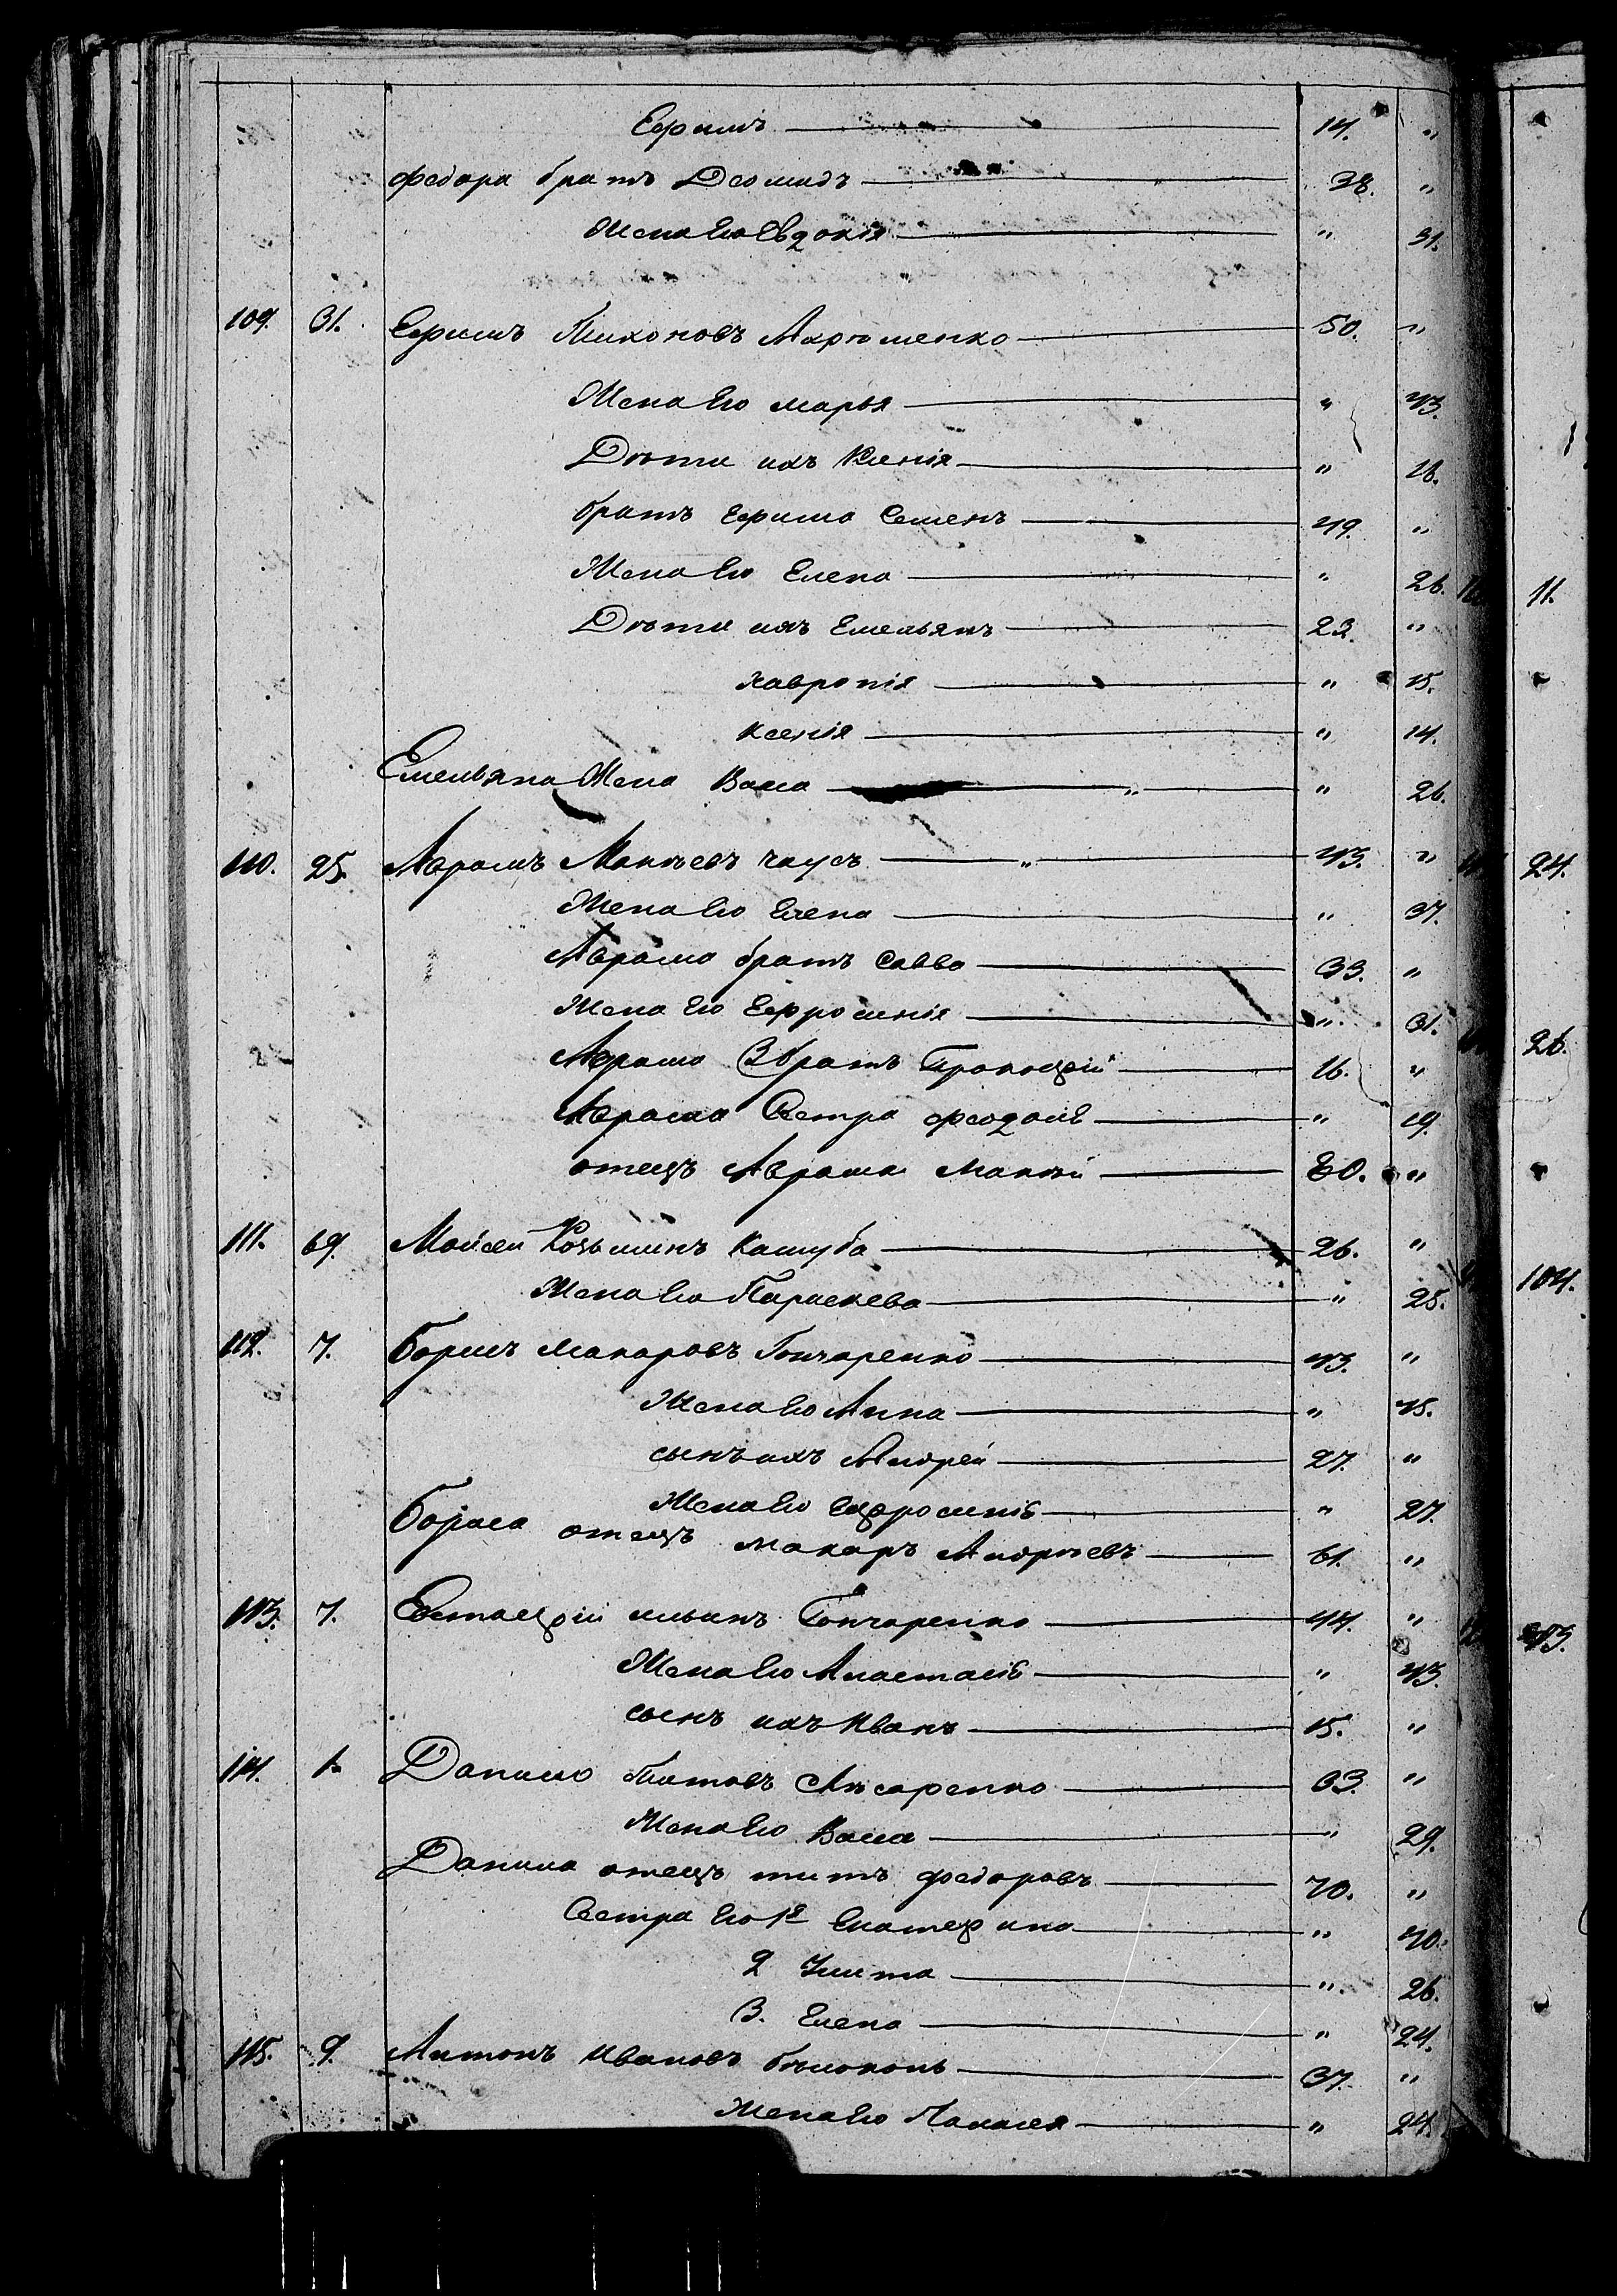 Ефимъ — 14. "
Федора братъ Деомидъ — 38. "
Жена Его Евдокія — " 31.
109. 31. Ефимъ Тихоновъ Артюменко — 50. "
Жена Его марья — " 43.
Дѣти ихъ Ксенія — " 18.
братъ Ефима Семенъ — 49. "
Жена Его Елена — " 26.
Дѣти ихъ Емельянъ — 23. "
Хавронія — " 15.
Ксенія — " 14.
Емельяна Жена Васса — " 26.
110. 25. Абрамъ Мокѣевъ Чаусъ — 43. "
Жена Его Елена — " 37.
Абрама братъ Савва — 33. "
Жена Его Ефросинія — " 31.
Абрама 3 братъ Прокофій — 16. "
Абрама Сестра — " 19.
отецъ Абрама Мокѣй — 80. "
111. 69. Мойсей Козьминъ Кашуба — 26. "
Жена Его Параскева — " 25.
112. 7. Борисъ Макаровъ Гончаренко — 43. "
Жена Его Анна — " 45.
сынъ ихъ Андрей — 27. "
Жена Его Ефросинія — " 27.
Бориса отецъ Макаръ Андреевъ — 61. "
113. 7. Евстафій ильинъ Гончаренко — 44. "
Жена Его Анастасія — " 43.
сынъ ихъ Иванъ — 15. "
114. 1. Данило Титовъ — 33. "
Жена Его Васса — " 29.
Данила отецъ титъ федоровъ — 70. "
Сестра Его 1я Екатерина — " 40.
2 Улита — " 26.
3. Елена — " 24.
115. 9. Антонъ Ивановъ Бѣлоконь — 37. "
Жена Его — " 24.
11.
24.
26.
104.
43.